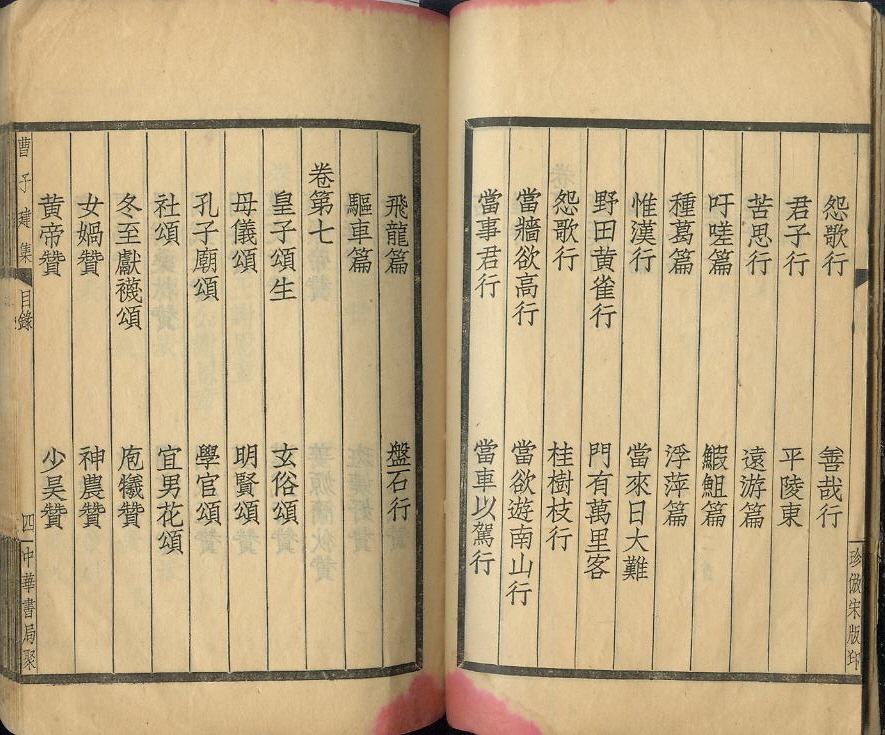 怨歌行 善哉行
君子行 平陵東
苦思行 遠游篇
吁嗟篇 鰕䱇篇
種葛篇 浮萍篇
惟漢行 當來日大難
野田黄雀行 門有萬里客
怨歌行 桂樹枝行
當牆欲高行 當欲遊南山行
當事君行 當車以駕行
珍倣宋版印
飛龍篇 盤石行
驅車篇
卷第七
皇子頌生 玄俗頌
母儀頌 明賢頌
孔子廟頌 學官頌
社頌 宜男花頌
冬至獻襪頌 庖犧贊
女媧贊 神農贊
黄帝贊 少昊贊
曹子建集 目錄 四 中華書局聚